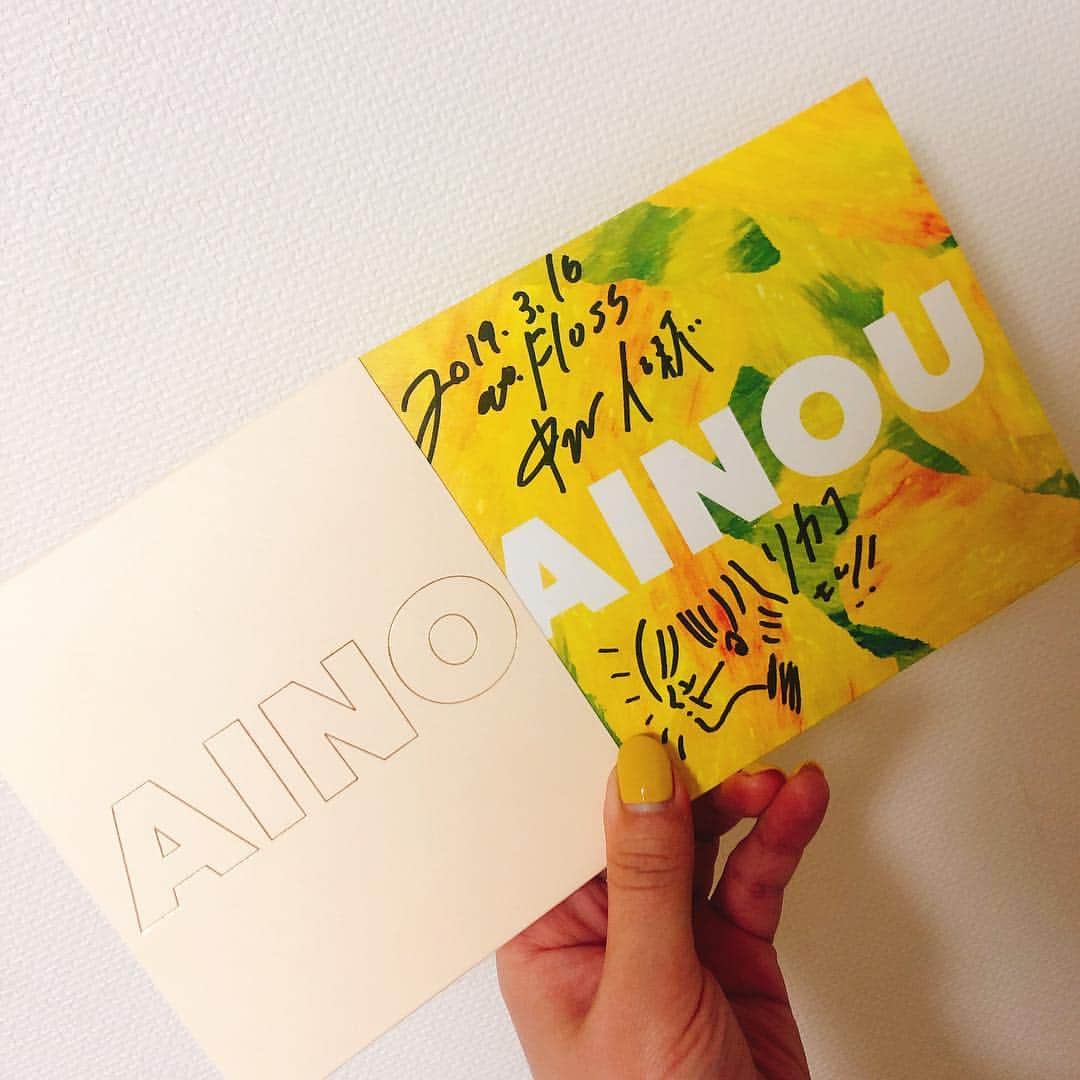 AINO
2019.3.16
at. Floss
中村佳穂
AINOU
リカコ
さん!!